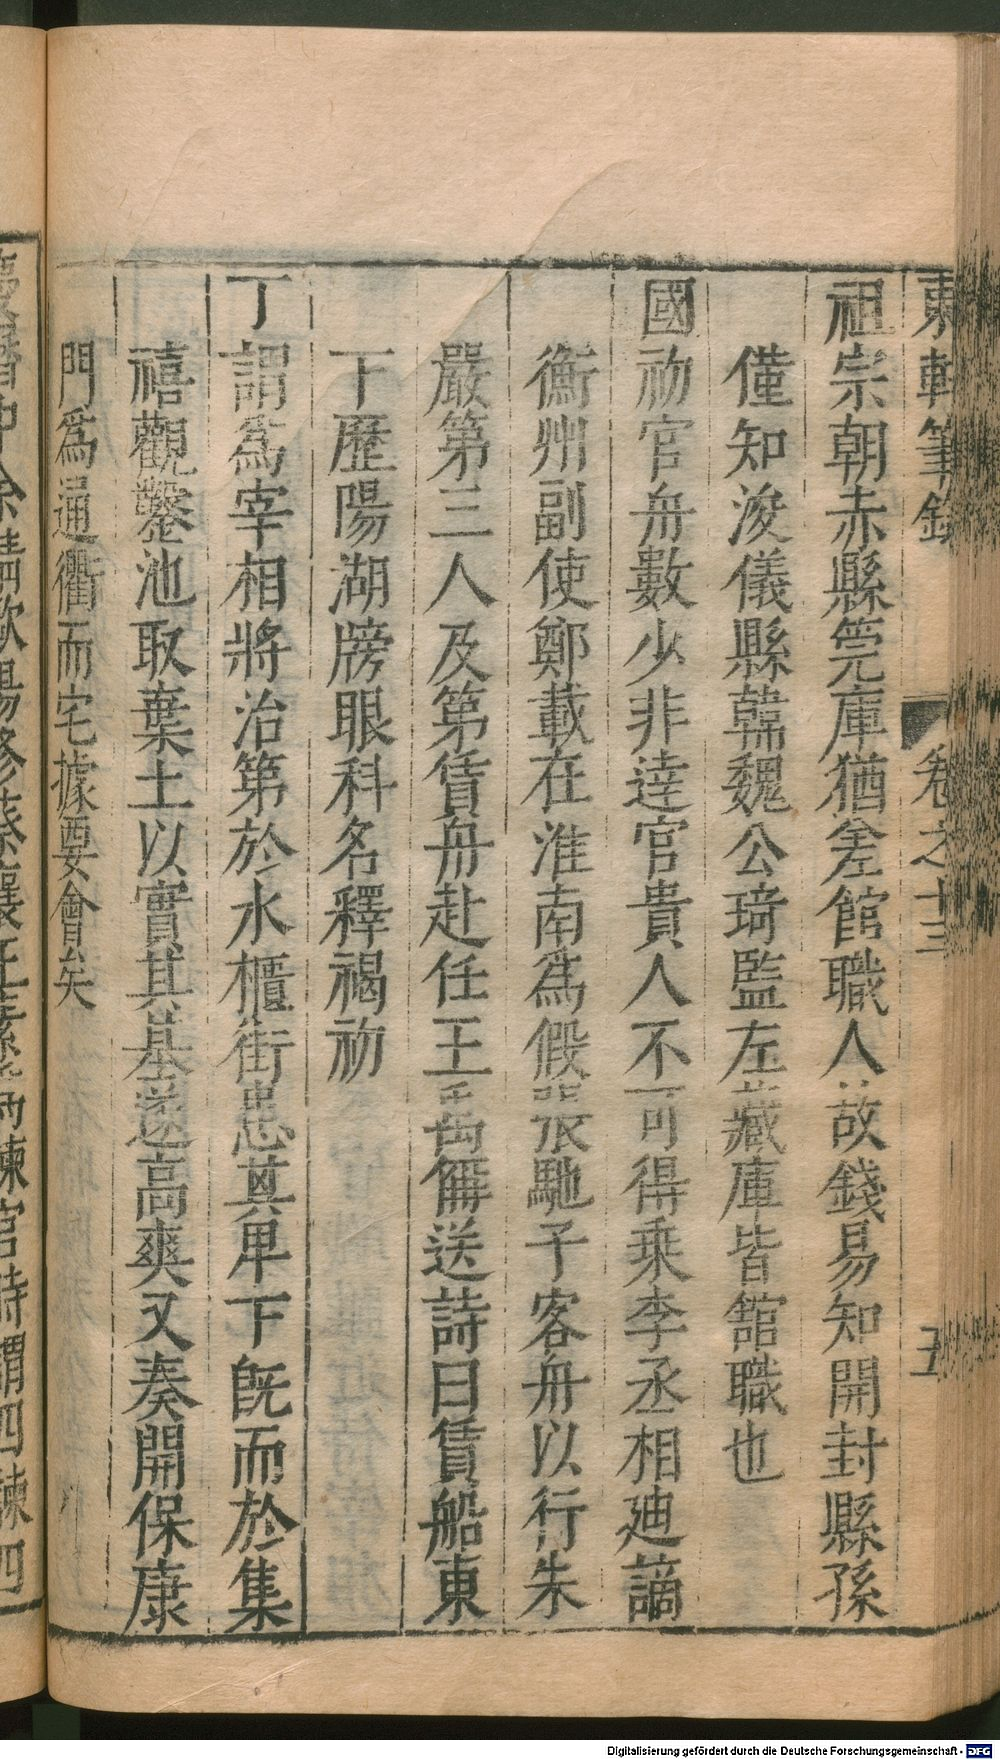 東軒筆錄 卷之十三 五
祖宗朝赤縣筦庫猶差館職人故錢易知開封縣孫
僅知浚儀縣韓魏公琦監左藏庫皆舘職也
國初官舟數少非逹官貴人不可得乗李丞相廸謫
衡州副使鄭載在淮南為假張馳子客舟以行朱
嚴第三人及第賃舟赴任王禹偁送詩曰賃船東
下歷陽湖牓眼科名釋褐初
丁謂為宰相將治第於水櫃街患其卑下旣而於集
禧觀鑿池取棄土以實其基遂高爽又奏開保康
門為通衢而宅據要會矣
慶曆中余靖歐陽修蔡襄王素為諫官時謂四諫四
Digitalisierung gefördert durch die Deutsche Forschungsgemeinschaft - DFG